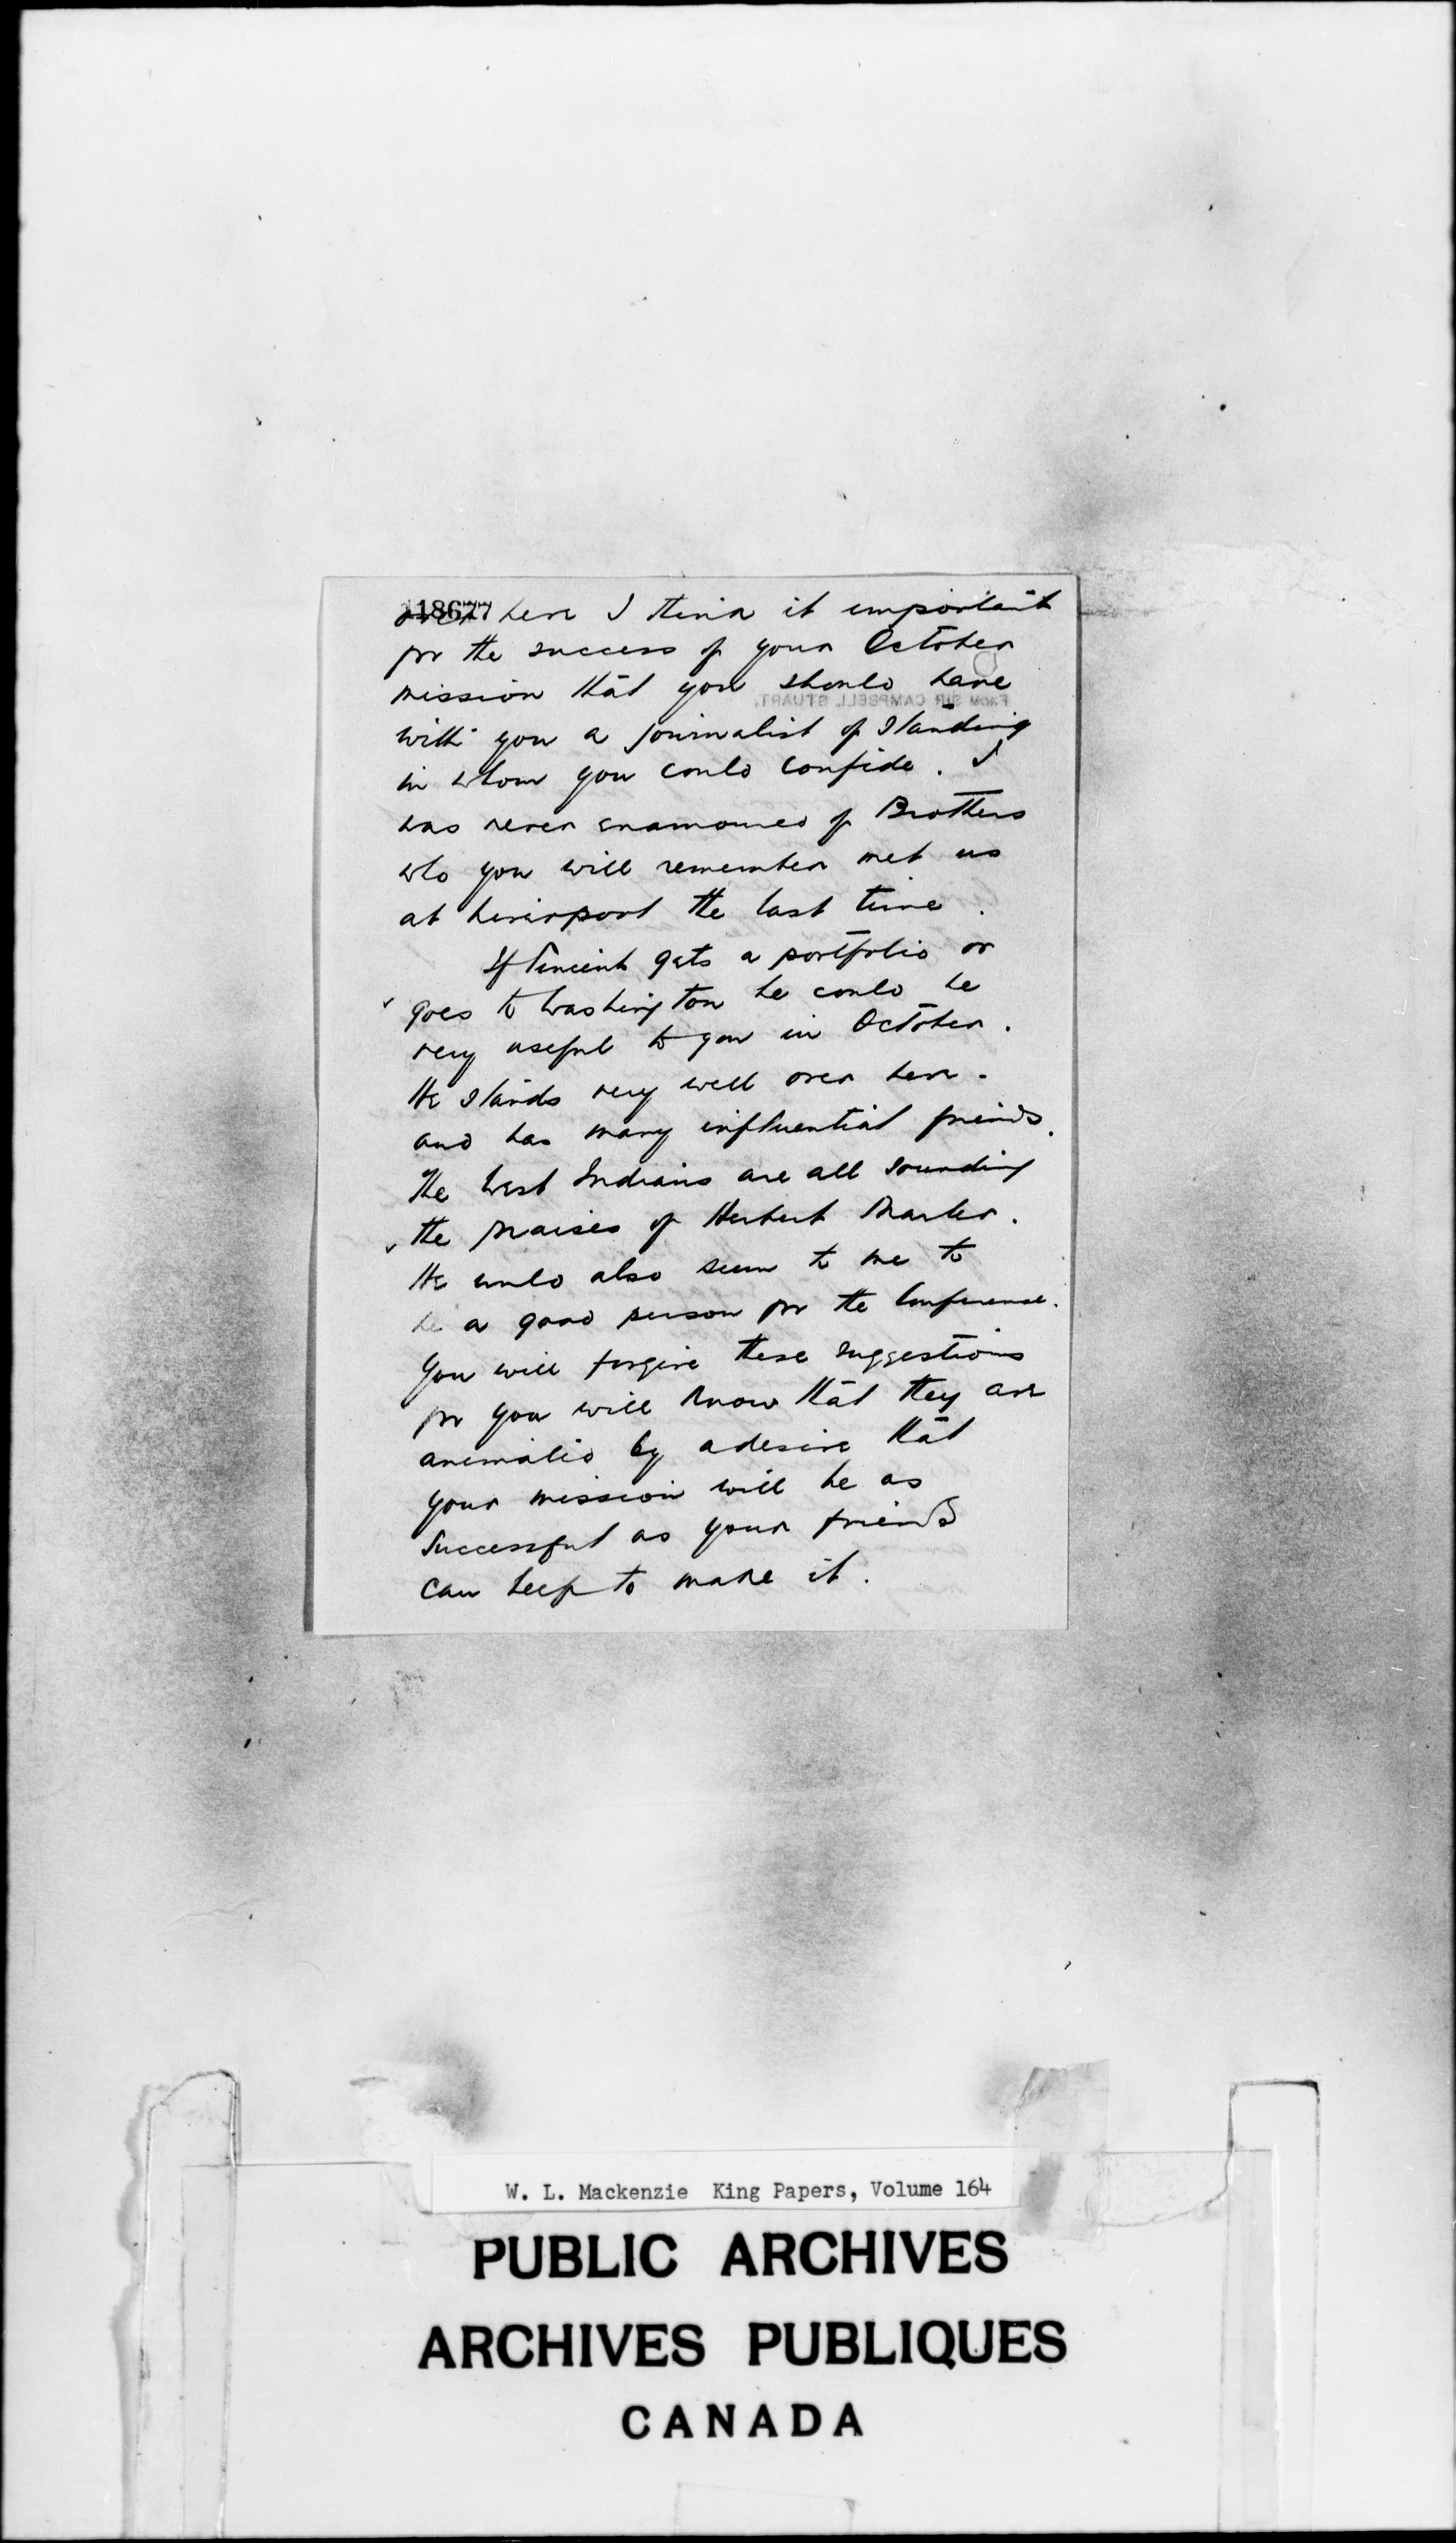 118627
over here I think it important
for the success of your October
mission that you should have
FROM SIR CAMPBELL STUART.
with you a journalist of standing
in whom you could confide. I
was never enamoured of Brothers
who you will remember met us
at Liverpool the last time.
If Vincent gets a portfolio or
goes to Washington he could be
very useful to you in October.
He stands very well over here.
and has many influential friends.
The West Indians are all sounding
the praises of Herbert Marler.
He would also seem to me to
be a good person for the Conference.
You will forgive these suggestions
for you will know that they are
animated by a desire that
your mission will be as
successful as your friends
can help to make it.
W. L. Mackenzie King Papers, Volume 164
PUBLIC ARCHIVES
ARCHIVES PUBLIQUES
CANADA